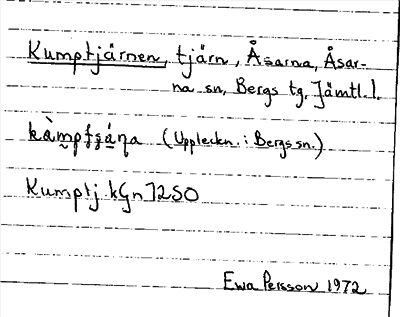 Kumptjärnen, tjärn, Åsarna, Åsar-
na sn, Bergs tg. Jämtl. l.
(Uppteckn. i Bergs sn.)
Kumptj. kGn 7250
Ewa Persson 1972